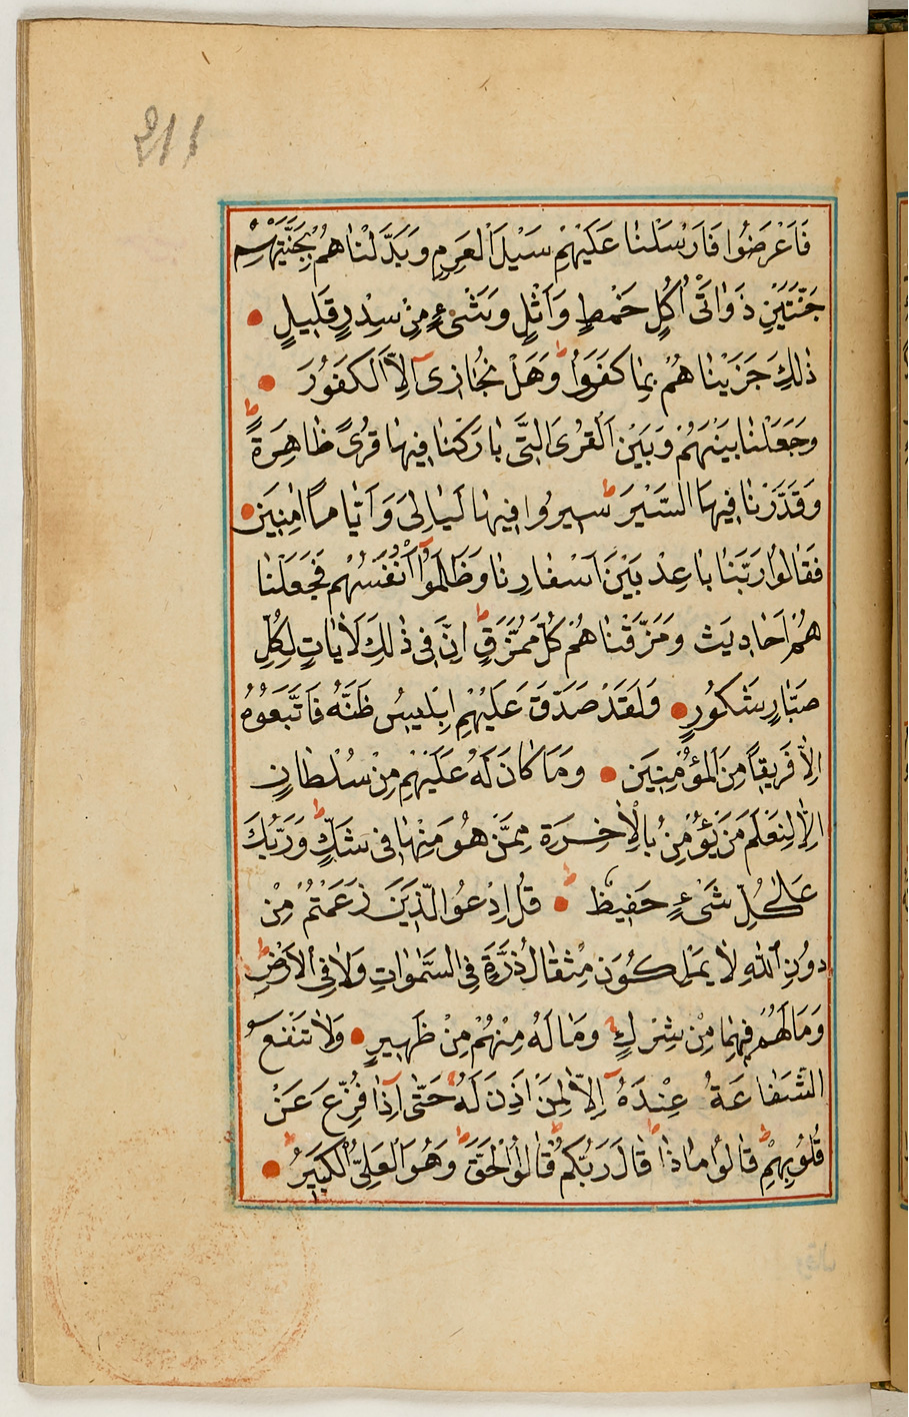 ٢١١
فَاَعْرَضُوا فَاَرْسَلْنَا عَلَيْهِمْ سَيْلَ الْعَرِمِ وَبَدَّلْنَاهُمْ بِجَنَّتَيْهِمْ
جَنَّتَيْنِ ذَوَاتَىْ اُكُلٍ خَمْطٍ وَاَثْلٍ وَشَىْءٍ مِنْ سِدْرٍ قَلِيلٍ
ذٰلِكَ جَزَيْنَاهُمْ بِمَا كَفَرُوا وَهَلْ نُجَازِى اِلَّا الْكَفُورَ
وَجَعَلْنَا بَيْنَهُمْ وَبَيْنَ الْقُرَى الَّتِى بَارَكْنَا فِيهَا قُرًى ظَاهِرَةً
وَقَدَّرْنَا فِيهَا السَّيْرَ سِيرُوا فِيهَا لَيَالِىَ وَاَيَّامًا اٰمِنِينَ
فَقَالُوا رَبَّنَا بَاعِدْ بَيْنَ اَسْفَارِنَا وَظَلَمُوا اَنْفُسَهُمْ فَجَعَلْنَا
هُمْ اَحَادِيثَ وَمَزَّقْنَاهُمْ كُلَّ مُمَزَّقٍ اِنَّ فِى ذٰلِكَ لَاٰيَاتٍ لِكُلِّ
صَبَّارٍ شَكُورٍ وَلَقَدْ صَدَّقَ عَلَيْهِمْ اِبْلِيسُ ظَنَّهُ فَاتَّبَعُوهُ
اِلَّا فَرِيقًا مِنَ الْمُؤْمِنِينَ وَمَا كَانَ لَهُ عَلَيْهِمْ مِنْ سُلْطَانٍ
اِلَّا لِنَعْلَمَ مَنْ يُؤْمِنُ بِالْاٰخِرَةِ مِمَّنْ هُوَ مِنْهَا فِى شَكٍّ وَرَبُّكَ
عَلٰى كُلِّ شَىْءٍ حَفِيظٌ قُلِ ادْعُوا الَّذِينَ زَعَمْتُمْ مِنْ
دُونِ اللّٰهِ لَا يَمْلِكُونَ مِثْقَالَ ذَرَّةٍ فِى السَّمٰوَاتِ وَلَا فِى الْاَرْضِ
وَمَا لَهُمْ فِيهِمَا مِنْ شِرْكٍ وَمَا لَهُ مِنْهُمْ مِنْ ظَهِيرٍ وَلَا تَنْفَعُ
الشَّفَاعَةُ عِنْدَهُ اِلَّا لِمَنْ اَذِنَ لَهُ حَتّٰى اِذَا فُزِّعَ عَنْ
قُلُوبِهِمْ قَالُوا مَاذَا قَالَ رَبُّكُمْ قَالُوا الْحَقَّ وَهُوَ الْعَلِىُّ الْكَبِيرُ